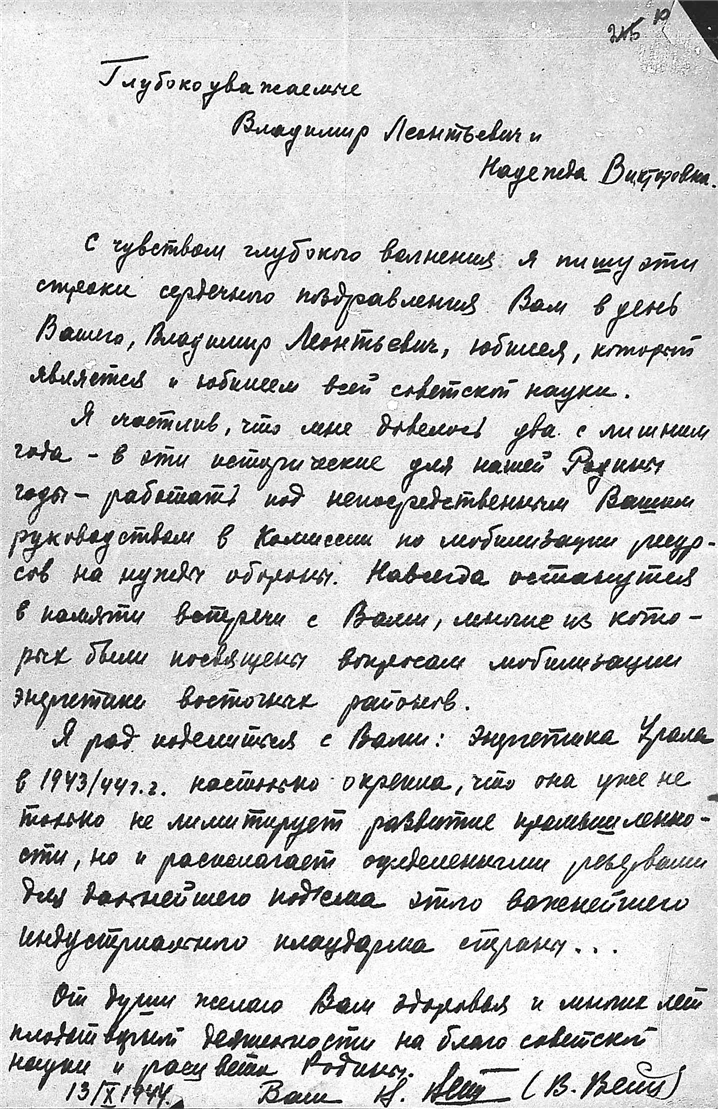 10
Глубокоуважаемые
Владимир Леонтьевич и
Надежда Викторовна.
С чувством глубокого волнения я пишу эти
строки сердечного поздравления Вам в день
Вашего, Владимир Леонтьевич, юбилея, который
является и юбилеем всей советской науки.
Я счастлив, что мне довелось два с лишним
года – в эти исторические для нашей Родины
годы – работать под непосредственным Вашим
руководством в Комиссии по мобилизации ресур-
сов на нужды обороны. Навсегда останутся
в памяти встречи с Вами, многие из кото-
рых были посвящены вопросам мобилизации
энергетики восточных районов.
Я рад поделиться с Вами: энергетика Урала
в 1943/44 г.г. настолько окрепла, что она уже не
только не лимитирует развитие промышленно-
сти, но и располагает определенными резервами
для дальнейшего подъема этого важнейшего
индустриального плацдарма страны...
От души желаю Вам здоровья и многих лет
плодотворной деятельности на благо советской
науки и расцвета Родины.
13/X 1944. Ваш (В. Вейц)